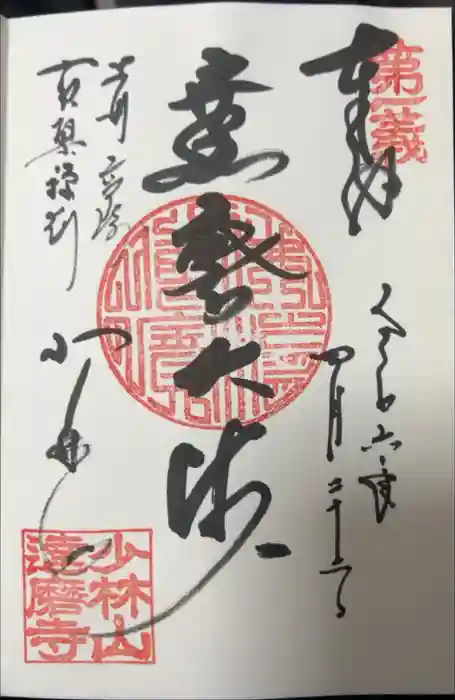 第一義
奉拝
令和六
四月二十二日
達磨大師
上州 高崎
黄檗禅刹
少林山
少林山
達磨寺